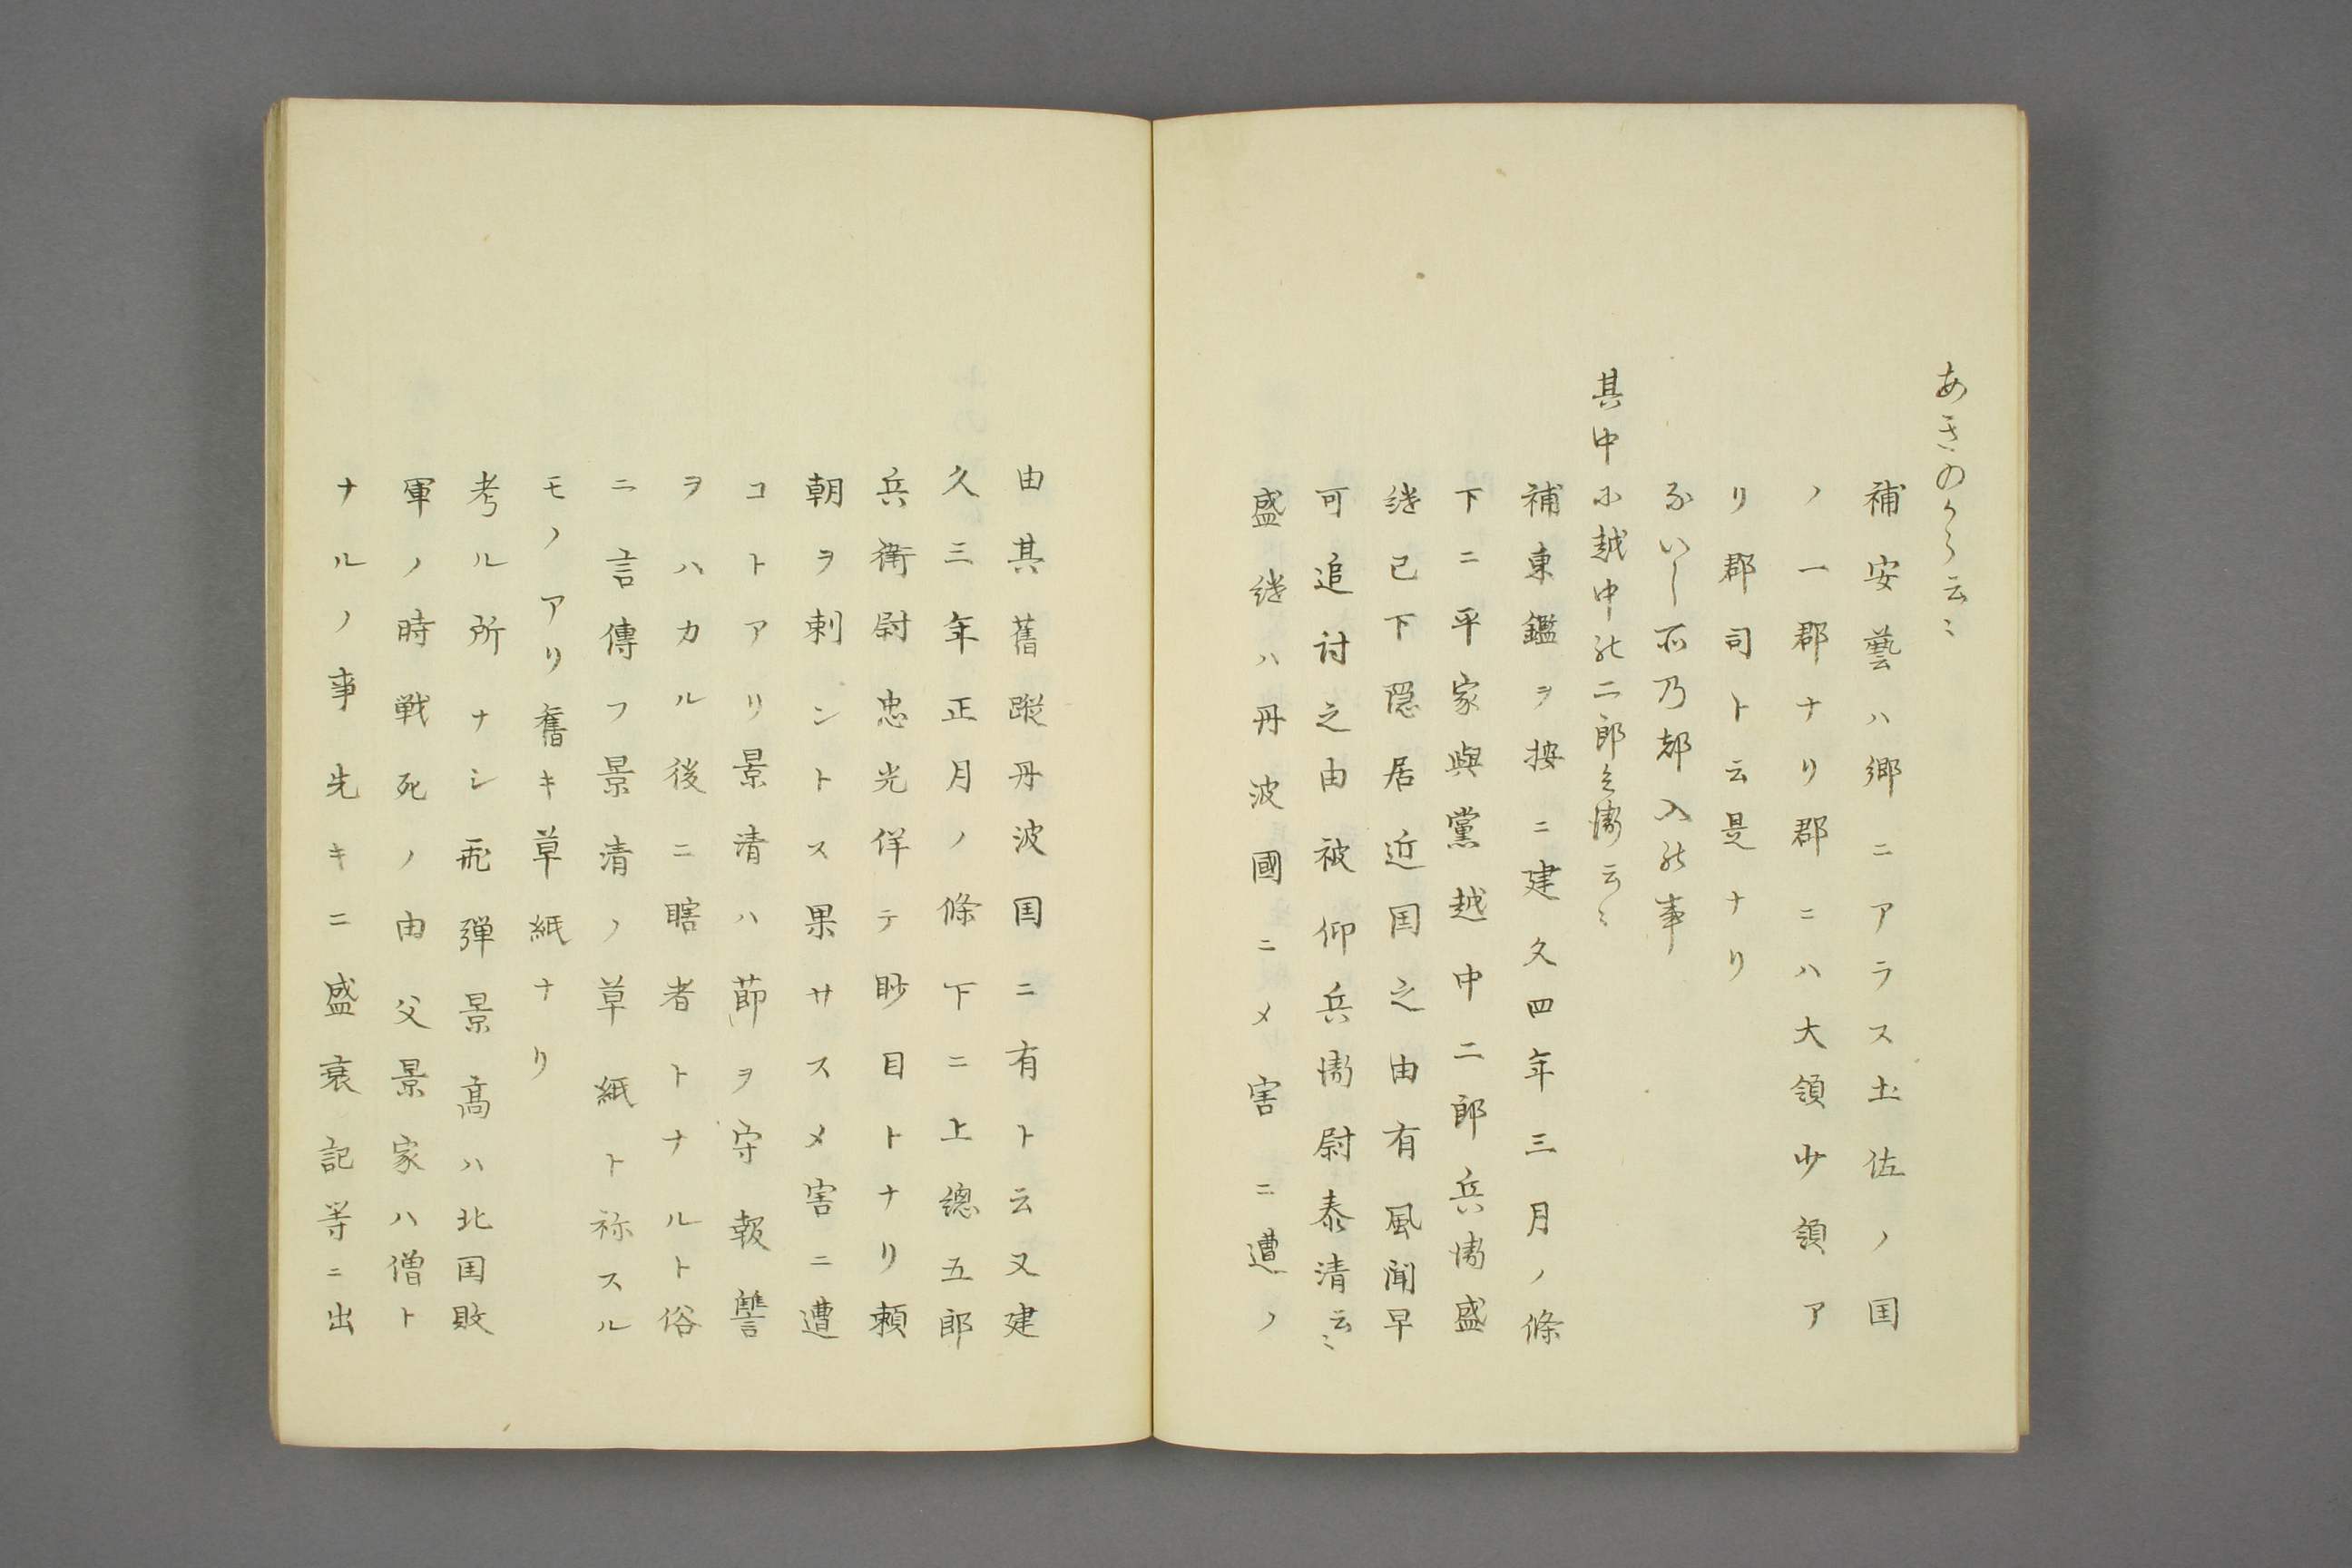 あきのかう云〻
補安藝ハ郷ニアラス土佐ノ国
ノ一郡ナリ郡ニハ大領少領ア
リ郡司ト云是ナリ
ないし所乃都入能事
其中小越中能二郎兵衛云〻
補東鑑ヲ按ニ建久四年三月ノ條
下ニ平家與黨越中二郎兵衛盛
継已下隠居近国之由有風聞早
可追討之由被仰兵衛尉泰清云〻
盛継ハ丹波國ニメ害ニ遭ノ
由其舊蹤丹波国ニ有ト云又建
久三年正月ノ條下ニ上總五郎
兵衛尉忠光佯テ眇目トナリ頼
朝ヲ刺ントス果サスメ害ニ遭
コトアリ景清ハ節ヲ守報讐
ヲハカル後ニ瞎者トナルト俗
ニ言傳フ景清ノ草紙ト称スル
モノアリ舊キ草紙ナリ
考ル所ナシ飛弾景高ハ北国敗
軍ノ時戦死ノ由父景家ハ僧ト
ナルノ事先キニ盛衰記等ニ出